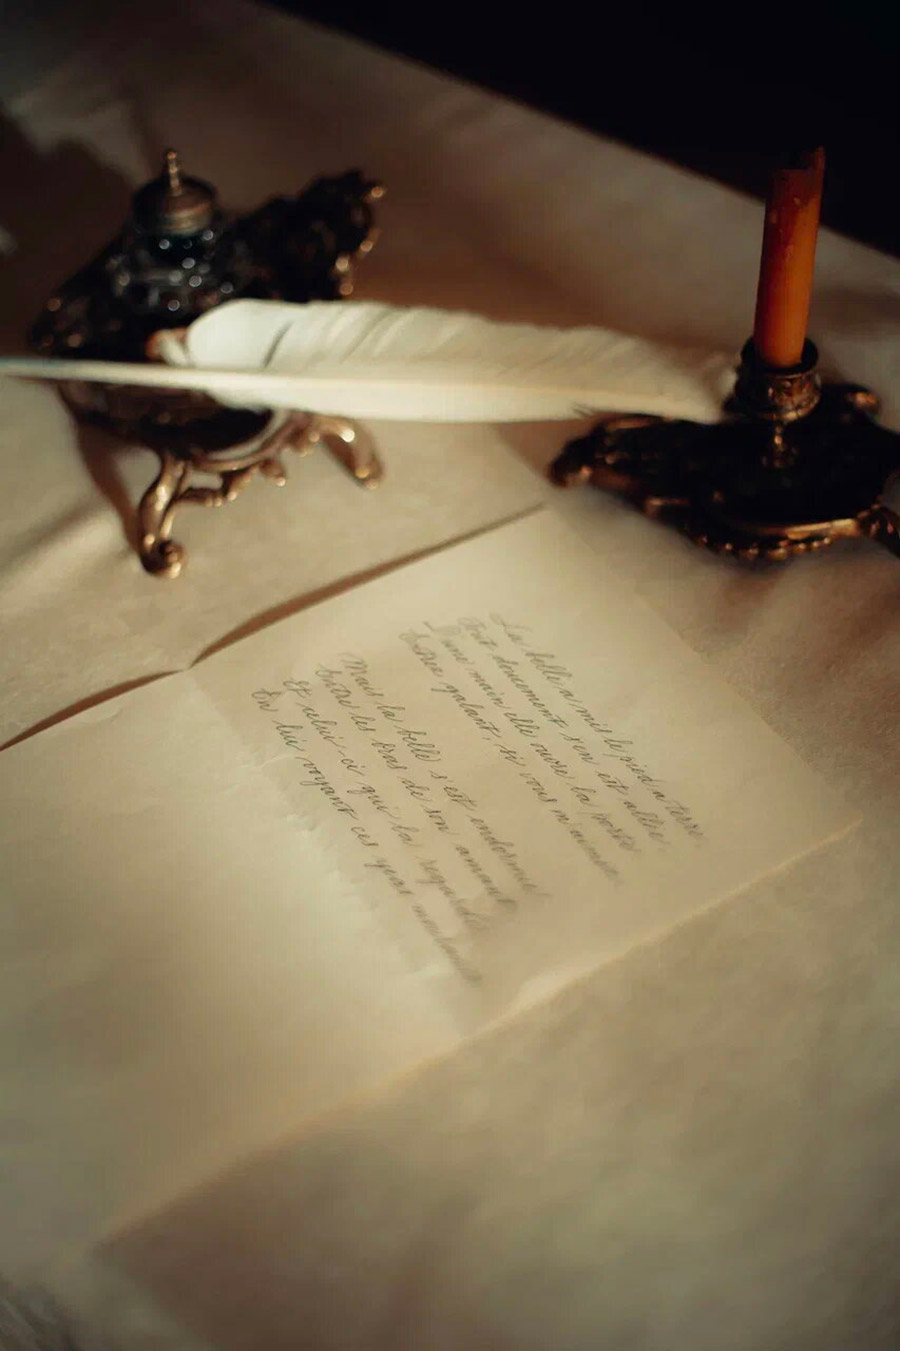 La belle a mis le pied à terre
Tout doucement s'en est allée
D'une main elle ouvre la porte
Entrez galant, si vous m'aimez
Mais la belle s'est endormie
Entre les bras de son amant
Et celui-ci qui la regarde
En lui voyant ces yeux mourants